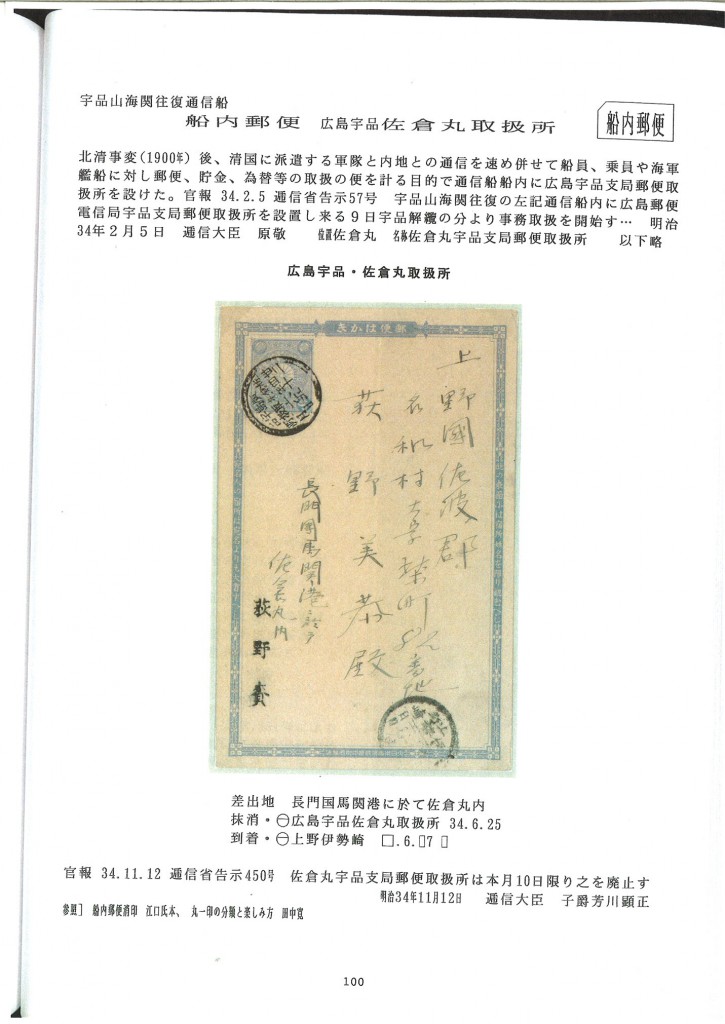 宇品山海関往復通信船
船内郵便 広島宇品佐倉丸取扱所
船内郵便
北清事変(1900年)後、清国に派遣する軍隊と内地との通信を速め併せて船員、乗員や海軍
艦船に対し郵便、貯金、為替等の取扱の便を計る目的で通信船船内に広島宇品支局郵便取
扱所を設けた。官報 34.2.5 逓信省告示57号 宇品山海関往復の左記通信船内に広島郵便
電信局宇品支局郵便取扱所を設置し来る9日宇品解纜の分より事務取扱を開始す… 明治
34年2月5日 逓信大臣 原敬 位置佐倉丸 名称佐倉丸宇品支局郵便取扱所 以下略
広島宇品・佐倉丸取扱所
郵便はかき
上野國佐波郡
名和村大字柴町
番地
荻野美恭殿
長門国馬関港ニ於テ
佐倉丸内
荻野賚
差出地 長門国馬関港に於て佐倉丸内
抹消・㊀広島宇品佐倉丸取扱所 34.6.25
到着・㊀上野伊勢崎 □.6.□7□
官報 34.11.12 逓信省告示450号 佐倉丸宇品支局郵便取扱所は本月10日限り之を廃止す
明治34年11月12日 逓信大臣 子爵芳川顕正
参照] 船内郵便消印 江口氏本、 丸一印の分類と楽しみ方 田中寛
100